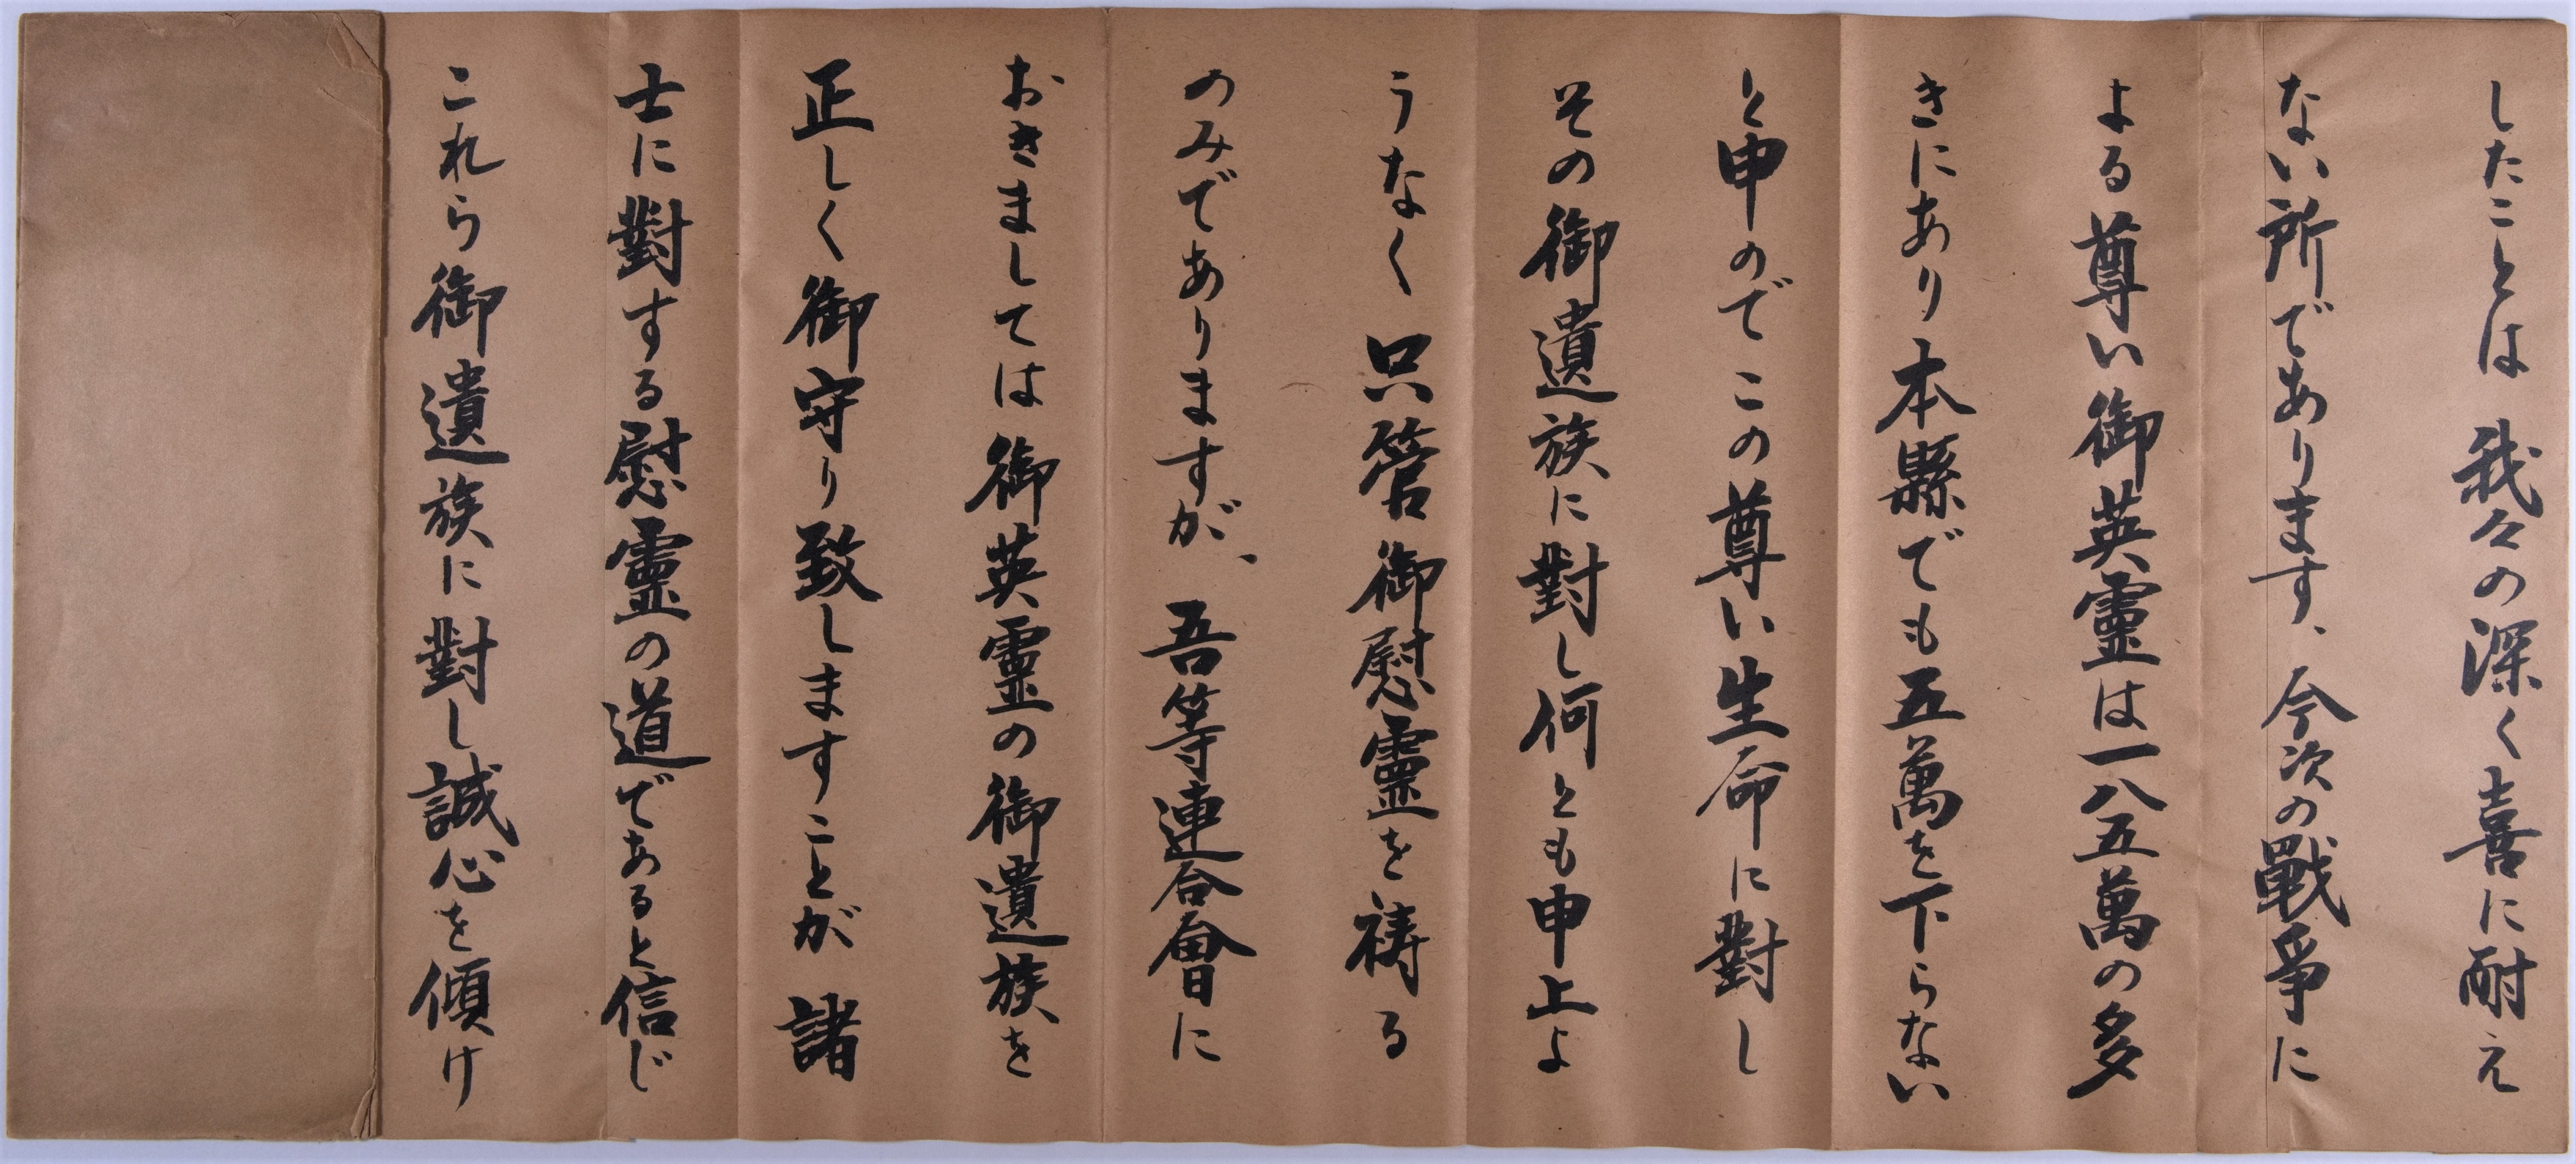 したことは 我々の深く喜に耐え
ない所であります、今次の戰爭に
よる尊い御英靈は一八五萬の多
きにあり本縣でも五萬を下らない
と申のでこの尊い生命に對し
その御遺族に對し何とも申上よ
うなく 只管御慰靈を祷る
のみでありますが、吾等連合會に
おきましては御英靈の御遺族を
正しく御守り致しますことが 諸
士に對する慰靈の道であると信じ
これら御遺族に對し誠心を傾け